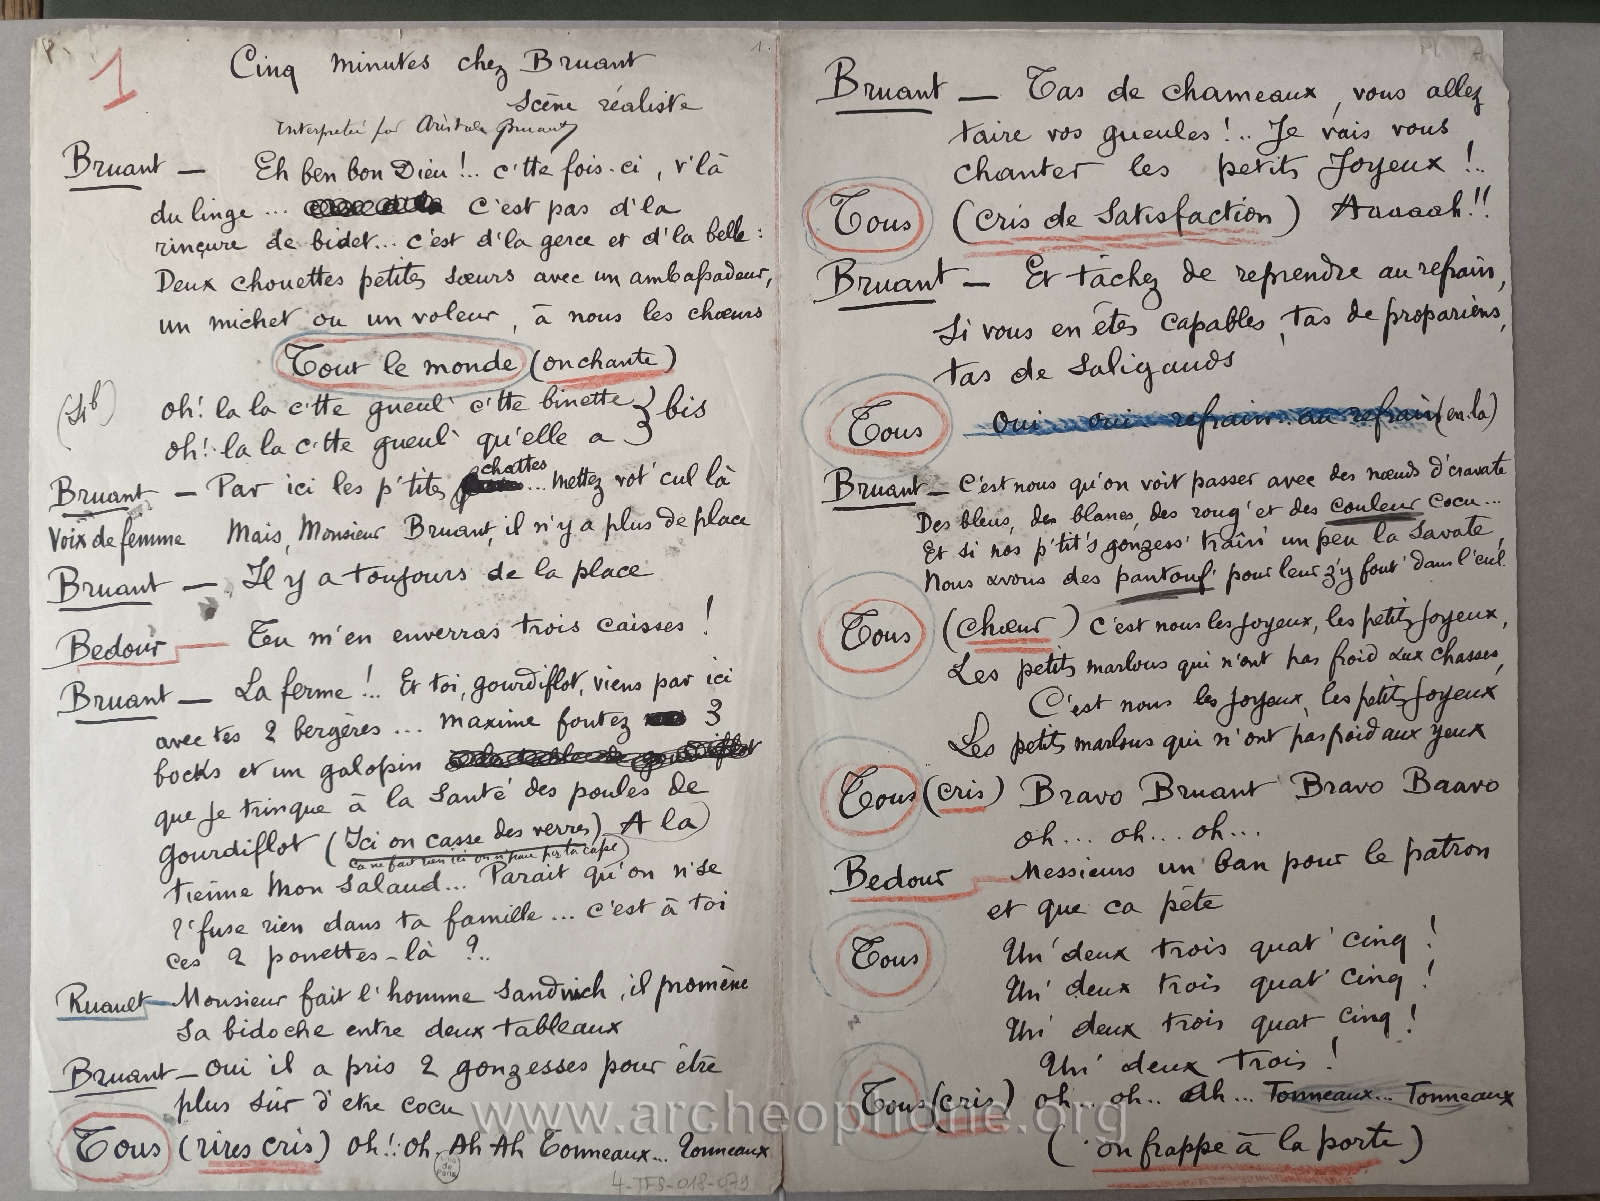 1
1.
Cinq minutes chez Bruant
Scène réaliste
Interprétée par Aristide Bruant
Bruant — Eh ben bon Dieu !.. c'tte fois-ci, v'là
du linge ... c'est pas d'la
rinçure de bidet... c'est d'la gerce et d'la belle :
Deux chouettes petites sœurs avec un ambassadeur,
un michet ou un voleur, à nous les chœurs
Tout le monde (on chante)
(Si b) oh! la la c'tte gueul' c'tte binette } bis
oh! la la c'tte gueul' qu'elle a
Bruant — Par ici les p'tites chattes ... mettez vot' cul là
Voix de femme Mais, Monsieur Bruant, il n'y a plus de place
Bruant — Il y a toujours de la place
Bedour — Tu m'en enverras trois caisses !
Bruant — La ferme !.. Et toi, gourdiflot, viens par ici
avec tes 2 bergères ... maxime foutez 3
bocks et un galopin
que je trinque à la santé des poules de
gourdiflot (Ici on casse des verres) A la
ça ne fait rien ici on n'paie pas la casse)
tienne mon salaud... Parait qu'on n'se
r'fuse rien dans ta famille ... c'est à toi
ces 2 ponettes-là ?..
Ruault — Monsieur fait l'homme sandwich, il promène
sa bidoche entre deux tableaux
Bruant — Oui il a pris 2 gonzesses pour être
plus sûr d'etre cocu
Tous (rires cris) Oh!. Oh. Ah Ah Tonneaux... Tonneaux
4-TFS-018-079
Bruant — Tas de chameaux, vous allez
taire vos gueules !.. Je vais vous
chanter les petits Joyeux !..
Tous (cris de satisfaction) Aaaaah!!
Bruant — Et tâchez de reprendre au refrain,
si vous en êtes capables, tas de propariens,
tas de saligauds
Tous Oui oui refrain.. au refrain (en la)
Bruant — C'est nous qu'on voit passer avec des nœuds d'cravate
Des bleus, des blancs, des roug' et des couleur cocu...
Et si nos p'tit's gonzess' train' un peu la savate,
Nous avons des pantouf' pour leur z'y fout' dans l'cul.
Tous (chœur) c'est nous les Joyeux, les petits Joyeux,
Les petits marlous qui n'ont pas froid aux chasses,
C'est nous les Joyeux, les petits Joyeux
Les petits marlous qui n'ont pas froid aux yeux
Tous (cris) Bravo Bruant Bravo Baavo
oh... oh... oh...
Bedour — Messieurs un ban pour le patron
et que ca pête
Tous Un' deux trois quat' cinq !
Un' deux trois quat' cinq !
Un' deux trois quat cinq !
Un' deux trois !
Tous (cris) oh.. oh.. Ah... Tonneaux... Tonneaux
(on frappe à la porte)
www.archeophone.org